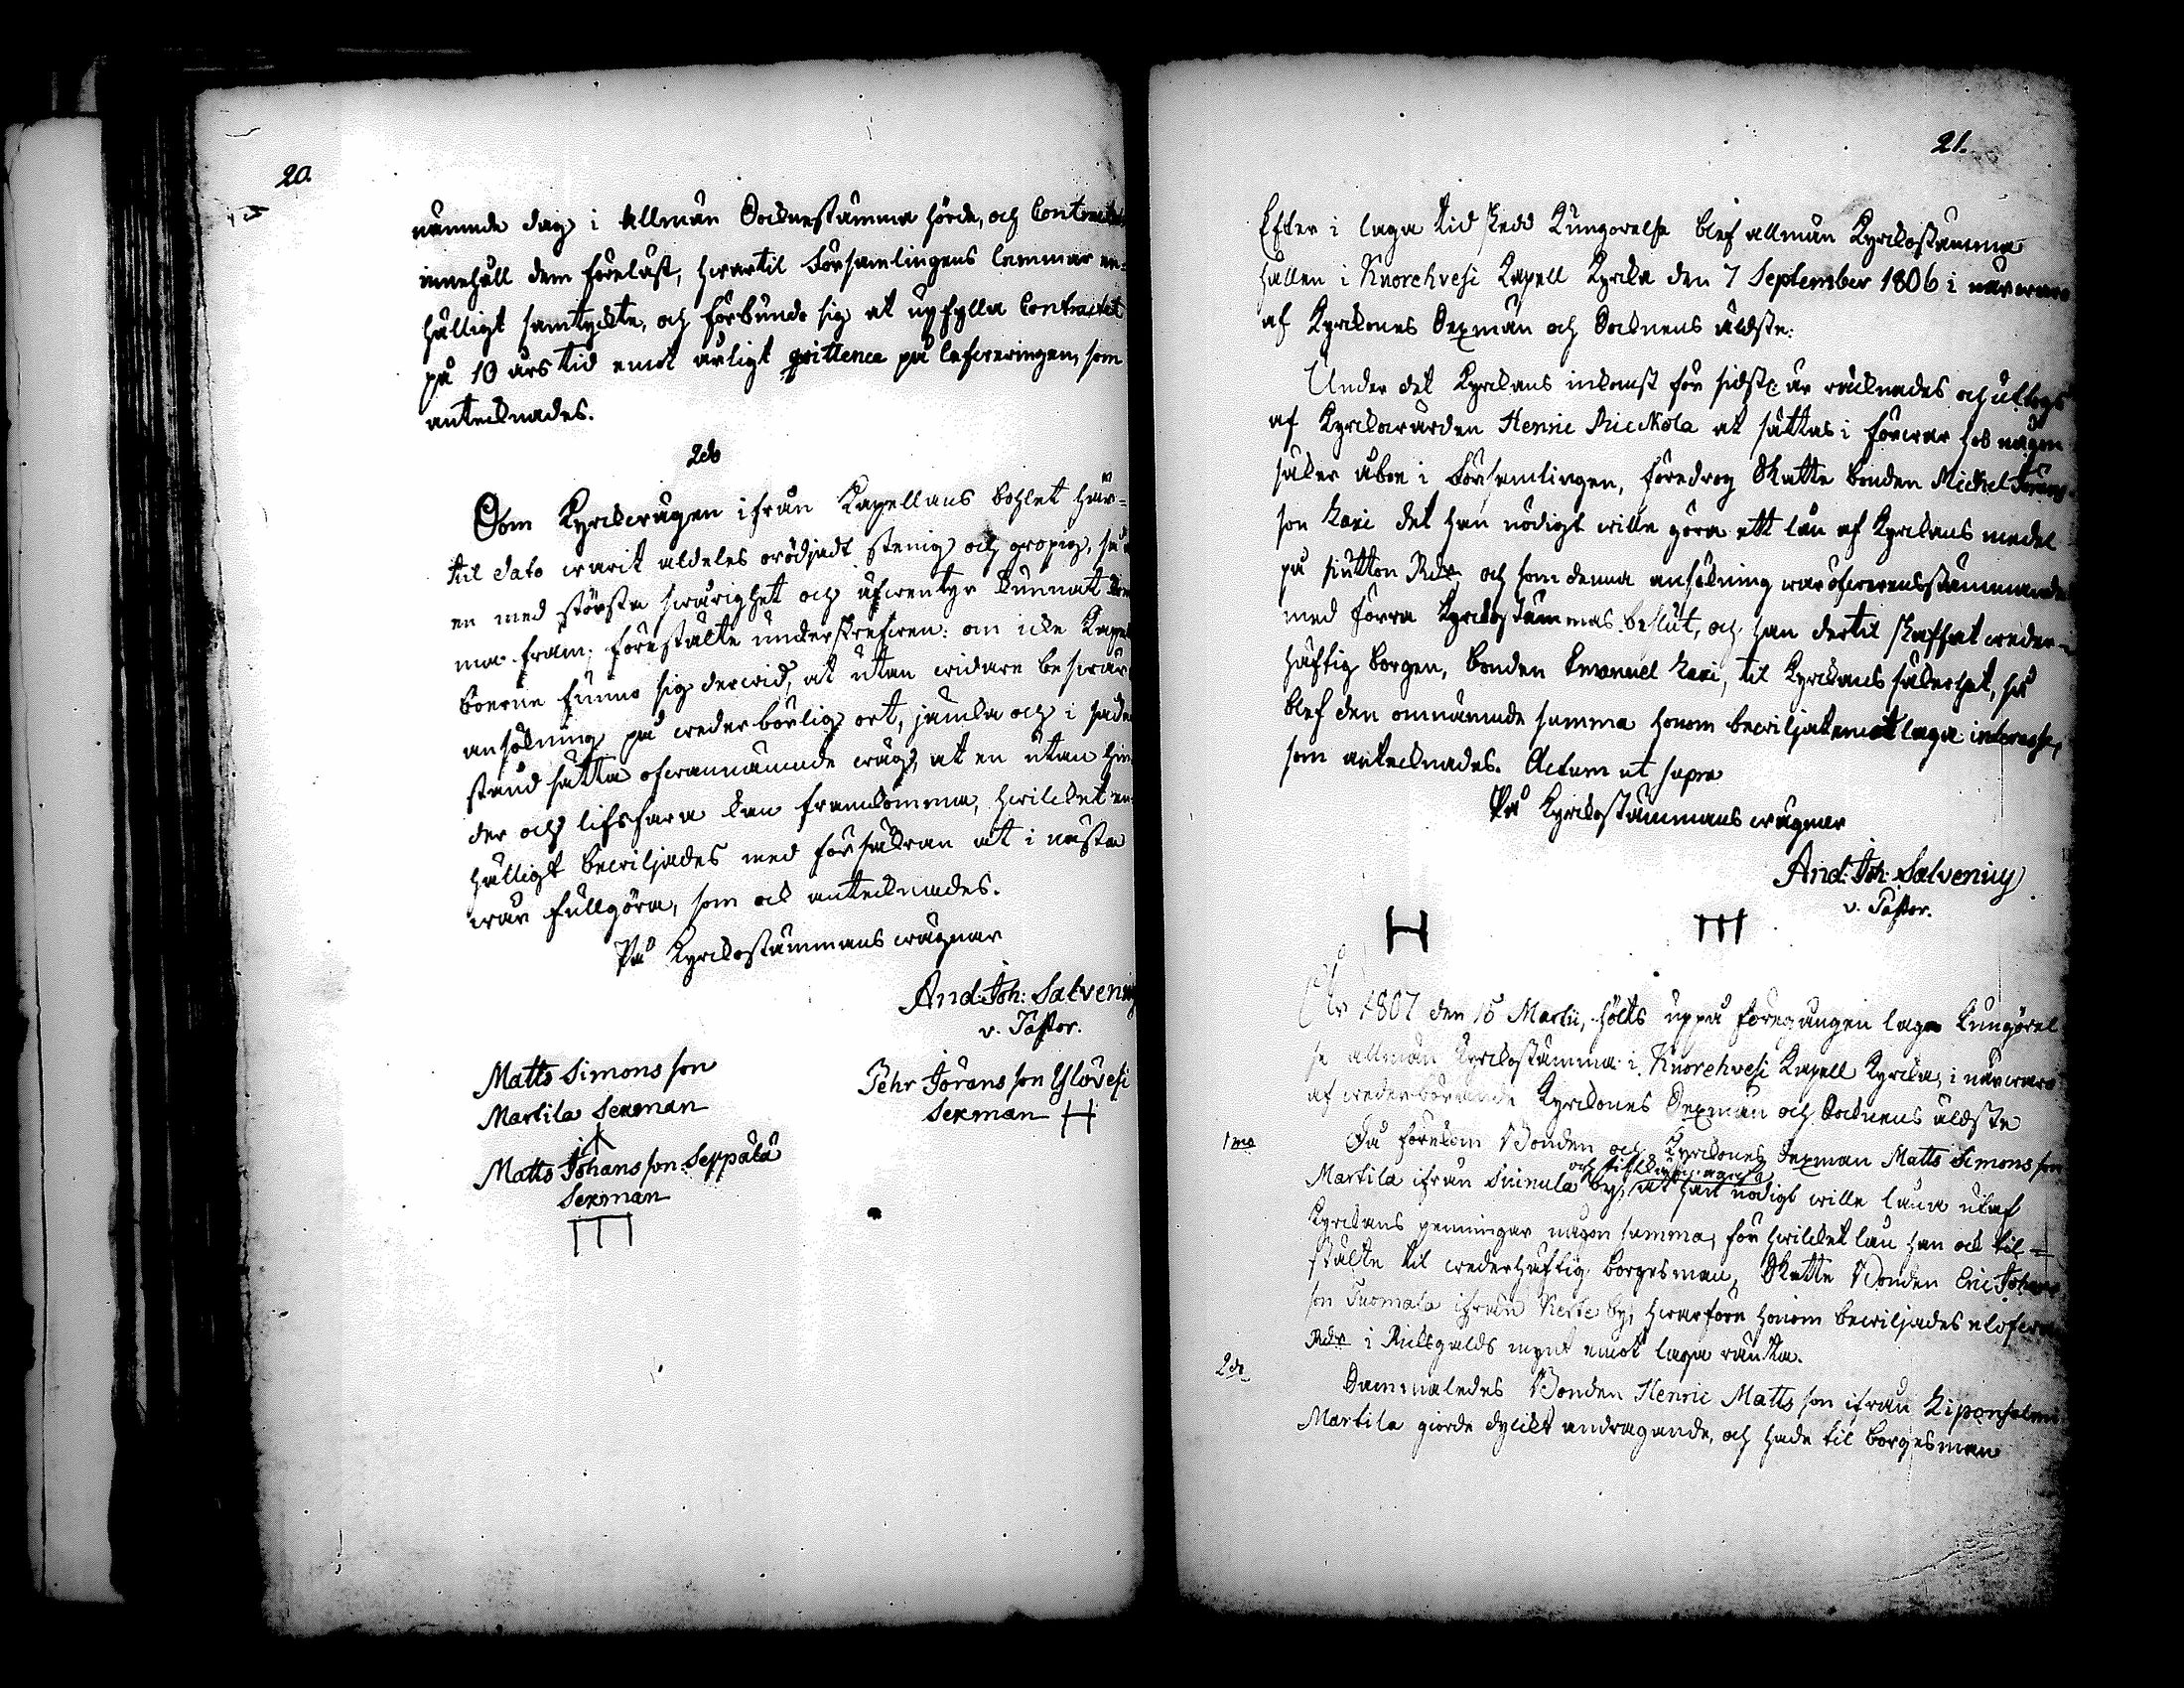 20.
nämnde dag i Allmän Socknestämma hörde, och Contractets
innehåll dem föreläst, hwartil Församlingens lemmar en-
hälligt samtyckte, och förbundo sig at upfylla Contractet
på 10 års tid emot årligt qvittence på lefwereringen, som
antecknades.
2do
Som Kyrckwägen ifrån Kapellans bohlet här-
til dato warit aldeles orödjadt stenig och gropig, så
en med största swårighet och äfwentyr kunnat
ma fram; förestälte underskrefwen: om icke Kapel
boerne funno sig derwid, at utan widare beswär
ansökning på wederbörlig ort, jämka och i
stånd sätta ofwannämnde wäg, at en utan hin-
der och lifsfara kan framkomma, hwilcket en-
hälligt bewiljades med försäkran at i nästa
wår fullgöra, som ock antecknades.
På Kyrckostämmans wägnar
And: Joh: Salvenius
v. Pastor.
Matts Simons son
Martila Sexman
Pehr Jörans son Ylövesi
Sexman H
Matts Johans son Seppälä
Sexman
21.
Efter i laga tid skedd Kungörelse blef allmän Kyrckostämma
hållen i Knorehvesi Kapell Kyrcka den 7 September 1806 i närwaro
af Kyrckones Sexmän och Socknens äldste:
Under det Kyrckans inkomst för sidste år räcknades och uttogs
af Kyrckowärden Henric Rieckola at sättas i förwar hos någon
säker åboe i Församlingen, föredrog Skatte bonden Michel Jörans
son Kaxi det han nödigt wille göra ett lån af Kyrckans medel
på siutton Rdr, och som denna ansökning war öfwerensstämmande
med förra Kyrckostämmas beslut, och han dertil skaffat weder-
häftig borgen, bonden Emanuel Kaxi, til Kyrckans säkerhet, så
blef den omnämnde summa honom bewiljat emot laga interesse,
som antecknades. Actum ut supra
På Kyrckostämmans wägnar
And: Joh: Salvenius
v. Pastor.
H
År 1807 den 15 Martii, hölts uppå föregången laga Kungörel
se allmän Kyrckostämma i Knorehvesi Kapell Kyrcka, i närwaro
af wederbörande Kyrckones Sexmän och Socknens äldste
1mo Då förekom Bonden och Kyrckones Sexman Matts Simons son
och
Martila ifrån Suinula by, at han nödigt wille låna utaf
Kyrckans penningar någon summa, för hwilcket lån han ock til-
stälte til wederhäftig borgesman, Skatte Bonden Eric Johans
son Tuomala ifrån by, hwarföre honom bewiljades elofwa
Rdr i Ricksgälds mynt emot laga ränta.
2do Sammaledes Bonden Henric Matts son ifrån
Martila giorde dylikt andragande, och hade til borgesman